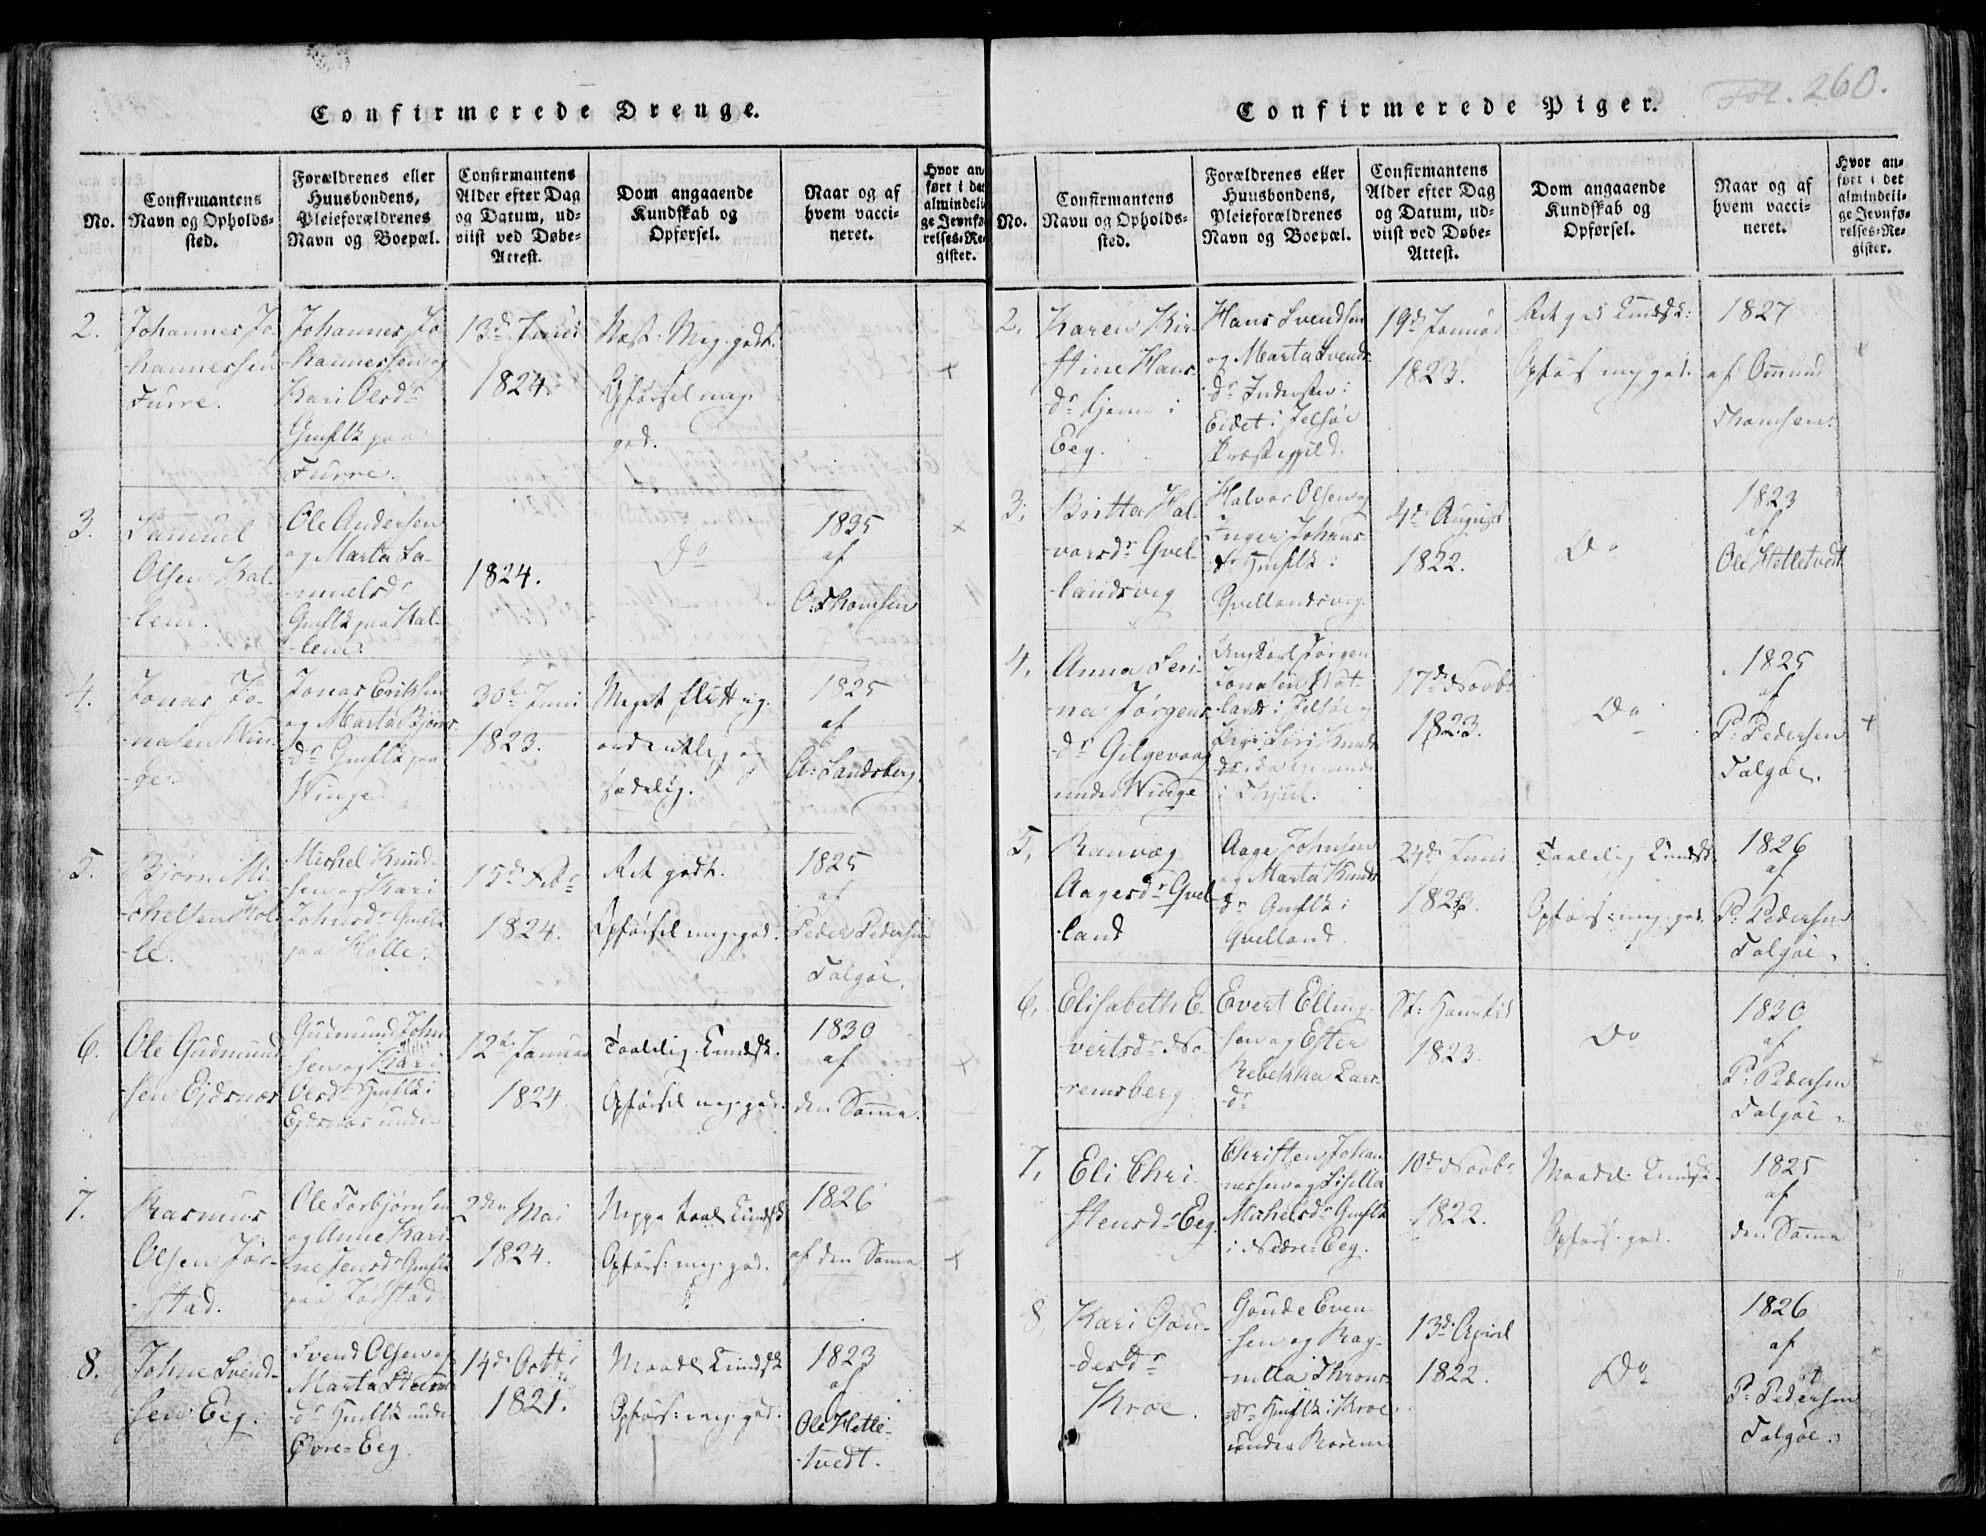 Fol. 260.
Confirmerede Drenge.
No.
Confirmantens
Navn og Opholds-
sted.
Forældrenes eller
Huusbondens,
Pleieforældrenes
Navn og Boepæl.
Confirmantens
Alder efter Dag
og Datum, ud-
viist ved Døbe-
Attest.
Dom angaaende
Kundskab og
Opførsel.
Naar og af
hvem vacci-
neret.
Hvor an-
ført i det
almindeli-
ge Jevnfø-
relses-Re-
gister.
2.
Johannes Jo-
hannessen
Furre.
Johannes Jo-
hannessen og
Kari Olsdr
Gmflk paa
Furre.
13d Juni
1824.
Næst. Meg. godt.
Opførsel meg.
god.
+
3.
Samuel
Olsen Hal-
lem.
Ole Andersen
og Marta Sa-
muelsdr
Gmflk paa Hal-
lem.
1824.
Do
1835
af
O. Thomsen
+
4.
Jonas Jo-
nasen Win-
ge.
Jonas Eriksen
og Marta Bjørns-
dr Gmflk paa
Winge.
30te Juni
1823.
Meget flittig.
ordentlig og
sædelig.
1825
af
A. Sandsberg
5.
Bjørn Mi-
chelsen Hol-
le.
Michel Knud-
sen og Kari
Johnsdr Gmflk
paa Holle.
15d Febr
1824.
Ret godt.
Opførsel meg. god.
1825
af
Peder Pedersen
Talgøe.
6.
Ole Gudmund-
sen Ejdsnæs
Gudmund John-
sen og Kari
Olsdr Hmflk i
Ejdsnæs under
12te Januar
1824.
Taalelig Kundsk.
Opførsel meg. god.
1830
af
den Samme.
+
7.
Rasmus
Olsen Jør-
stad.
Ole Torbjørnsen
og Anne Kari-
ne Jensdr Gmflk
paa Jørstad
2den Mai
1824.
Neppe taal. Kundsk
Opførs: meg. god.
1826
af den Samme.
+
8.
Johne Svend-
sen Eeg.
Svend Olsen og
Marta Steens-
dr Hmflk under
Øvre-Eeg.
14de Octbr
1821.
Maadel. Kundsk
Opførs: meg. god.
1823
af
Ole Hetle-
tvedt.
Confirmerede Piger.
No.
Confirmantens
Navn og Opholds-
sted.
Forældrenes eller
Huusbondens,
Pleieforældrenes
Navn og Boepæl.
Confirmantens
Alder efter Dag
og Datum, ud-
viist ved Døbe-
Attest.
Dom angaaende
Kundskab og
Opførsel.
Naar og af
hvem vacci-
neret.
Hvor an-
ført i det
almindeli-
ge Jevnfø-
relses-Re-
gister.
2,
Karen Kir-
stine Hans-
dr tjener i
Eeg.
Hans Svendsen
og Marta Svends-
dr Inderster i
Eidet i Jelsøe
Præstegjeld.
19de Januar
1823.
Ret god Kundsk:
Opførs meg god.
1827
af Omund
Thomsen.
+
3,
Britta Hal-
vorsdr Qvel-
landsvig
Halvor Olsen og
Inger Johns-
dr Hmflk i
Qvellandsvig.
4de August
1822.
Do
1823
af
Ole Hetletvedt
4,
Anna Seri-
na Jørgens-
dr Gilgevaag
under Winge
Ungkarl Jørgen
Jonasen
i Jelsøe og
Pige Siri Knuds-
dr
17de Novbr
1823.
Do
1825
af
P. Pedersen
Talgøe.
+
5,
Ranvæg
Aagesdr Qvel-
land
Aage Johnsen
og Marta Knuds-
dr Gmflk i
Qvelland.
24de Juni
1823.
Taalelig Kundsk.
Opførs: meg. god.
1826
af
P. Pedersen
Talgøe.
6,
Elisabeth E-
vertsdr No-
remsberg.
Evert Elling-
sen og Ester
Rebekka Lars-
dr
St: Hanstid
1823.
Do
1830
af
P. Pedersen
Talgøe.
+
7,
Eli Chri-
stensdr Eeg.
Christen Johan-
nessen og Sisilla
Michelsdr Gmflk
i Nedre-Eeg.
10de Novbr
1822.
Maadel. Kundsk.
Opførs. god.
1825
af
den Samme
8,
Kari Gau-
desdr
Kroe.
Gaude Even-
sen og Rag-
nilla Throns-
dr Hmflk i Kroe
under Norem
13de April
1822.
Do
1826
af
P. Pedersen
Talgøe.